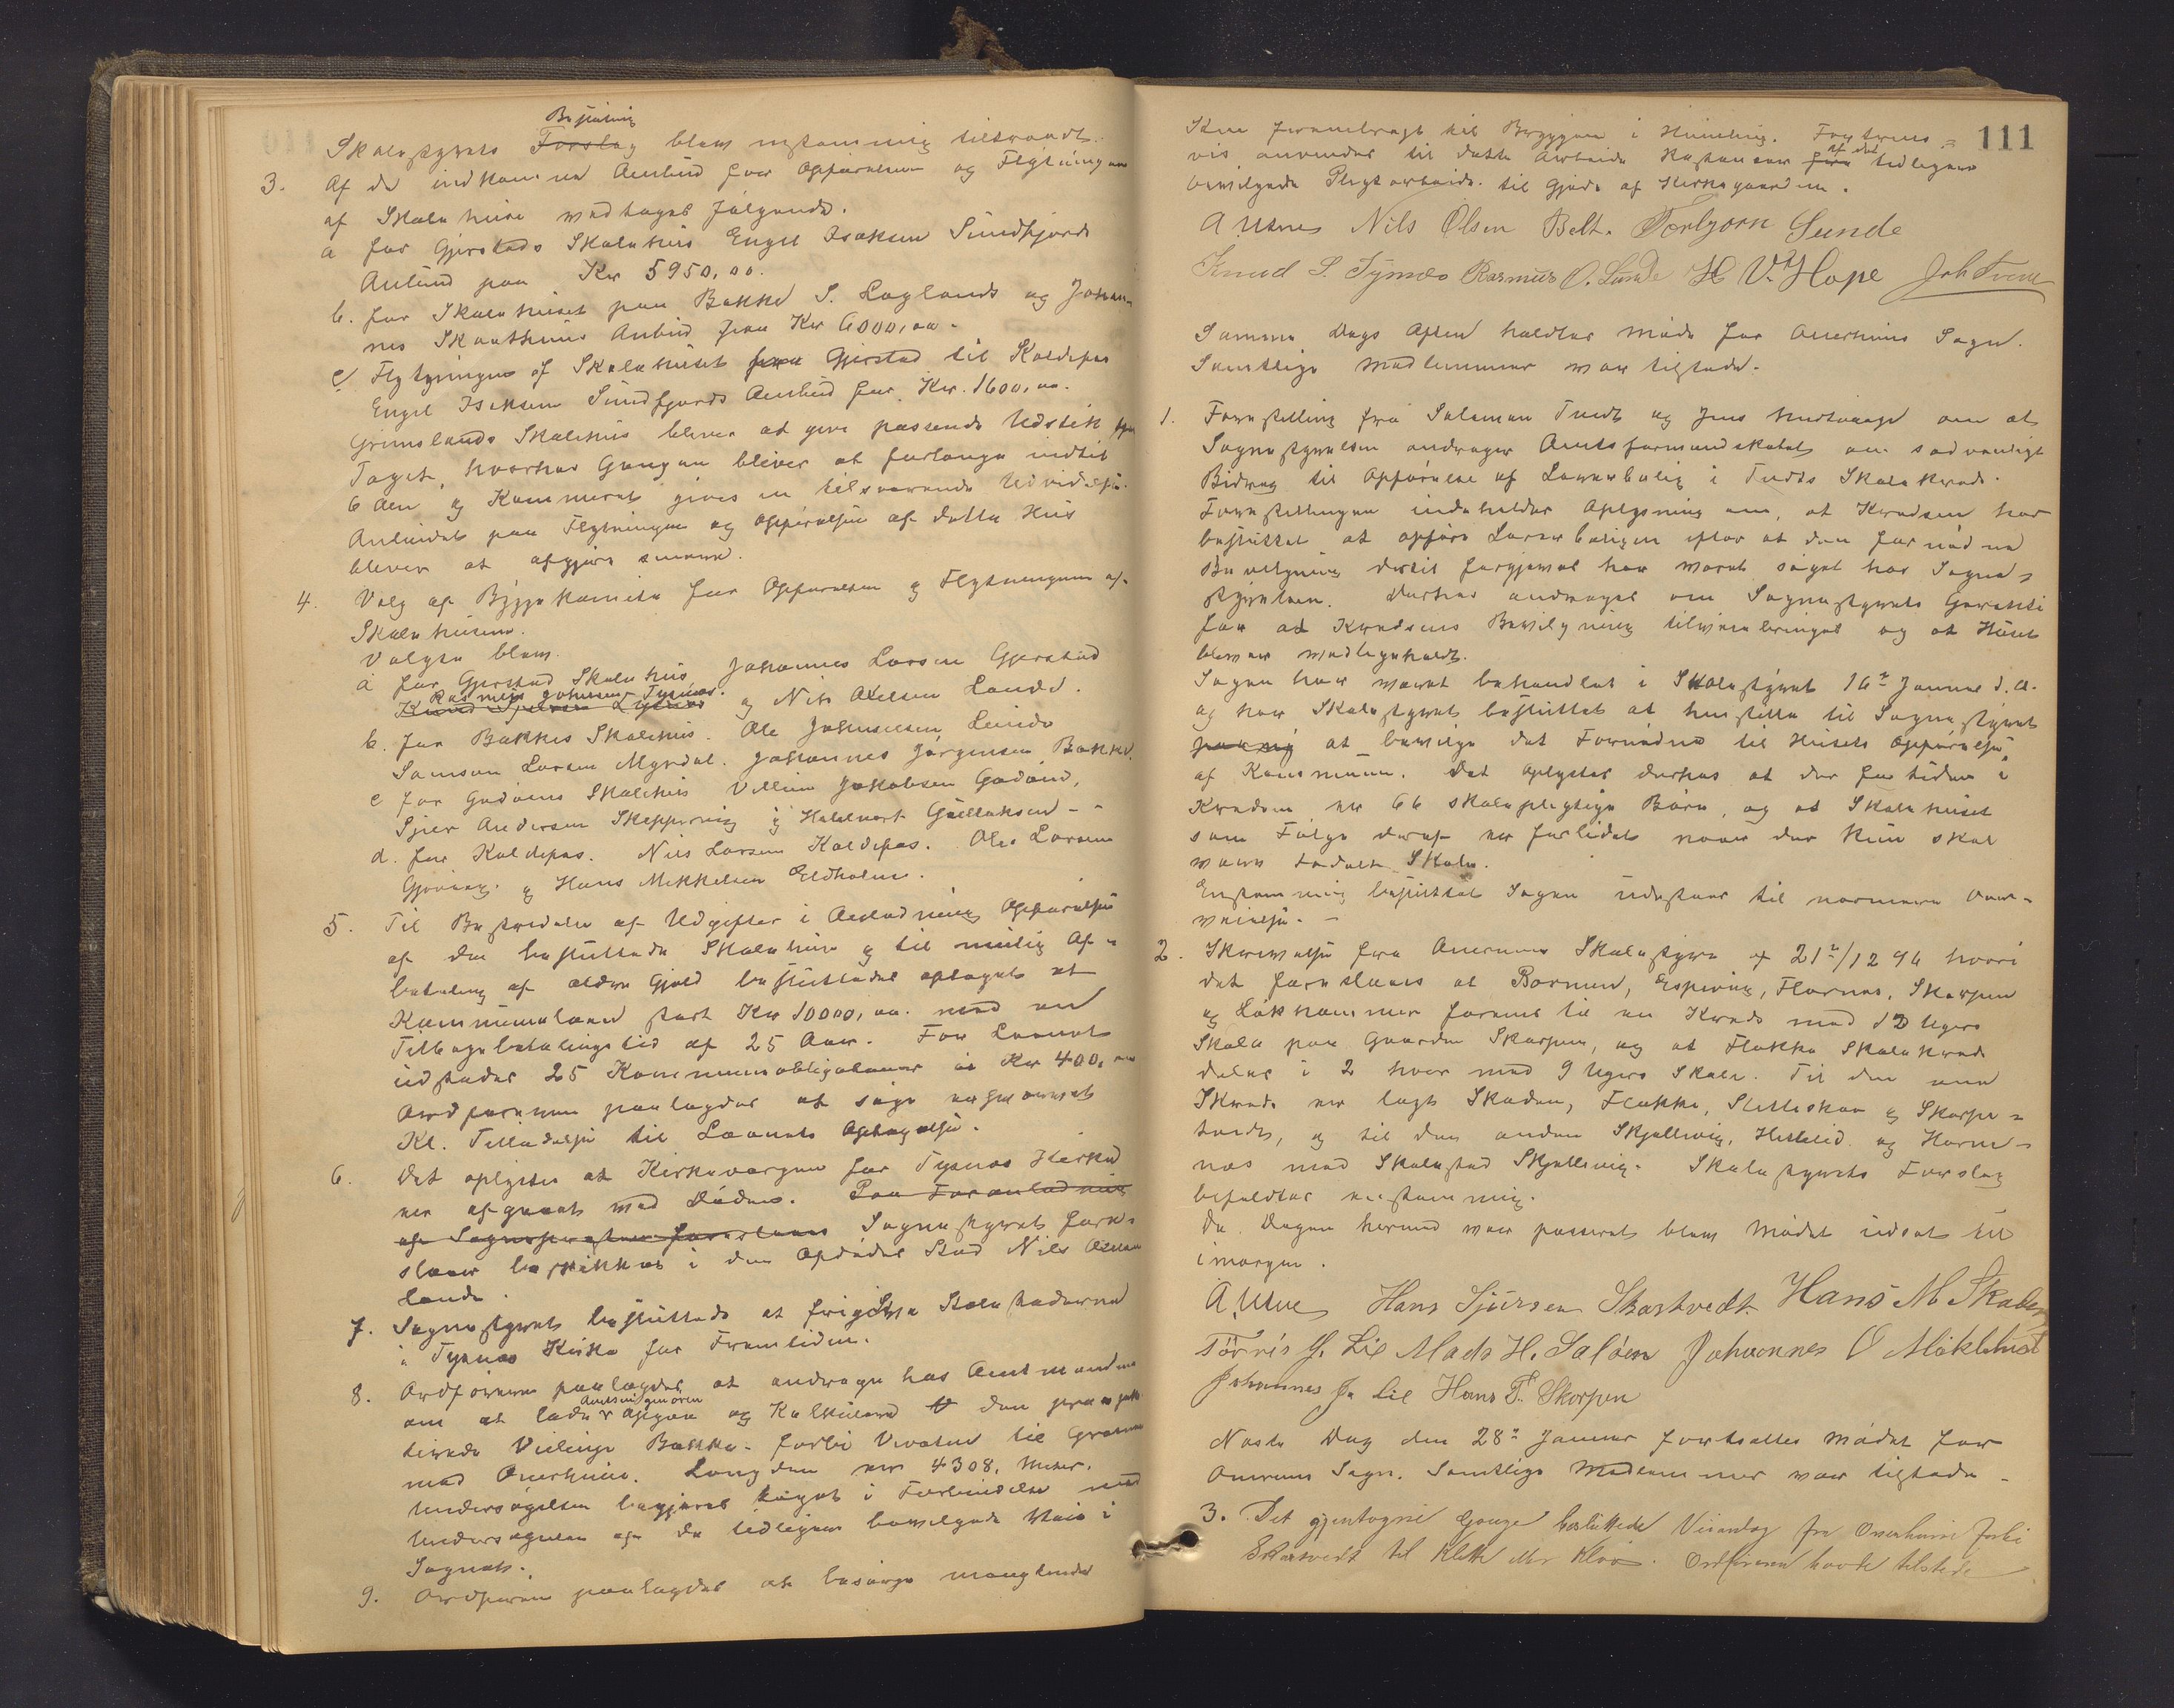 Beslutning
Skolestyrets Forslag blev enstemmig tiltraadt.
3. Af de indkomne Anbud for Opførelsen og Flytningen
af Skolehuse vedtages følgende.
a for Gjerstads Skolehus Engel Isaksen Sundfjords
Anbud paa Kr 5950,00.
b. for Skolehuset paa Bakke S. Røglands og Johan-
nes Skaathuns Anbud paa Kr 6000,00.
c Flytningen af Skolehuset fra Gjerstad til Koldefos
Engel Isaksen Sundfjords Anbud for Kr. 1600,00.
Grimslands Skolehus bliver at give passende Udstik
Taget, hvorhos Gangen bliver at forlænge indtil
6 Alen og Kammeret gives en tilsvarende Udvidelse.
Anbudet paa Flytningen og Opførelse af dette Hus
bliver at afgjøre senere.
4. Valg af Byggekomite for Opførelsen og Flytningen af
Skolehusene.
Valgte blev.
a for Gjerstad Skolehus Johannes Larsen Gjerstad
Rasmus Johannes Tysnes.
og Nils Axelsen Lande.
b. for Bakkes Skolehus. Ole Johannesen Lunde
Samson Larsen Myrdal. Johannes Jørgensen Bakke.
c for Godøens Skolehus Villum Jakobsen Godøen,
Sjur Andersen Skeppevig og Haldvart Gullaksen -
d. for Koldefos. Nils Larsen Koldefos. Ole Larsen
Gjøvaag. og Hans Mikkelsen Eldholm.
5. Til Bestridelse af Udgifter i Anledning Opførelse
af de besluttede Skolehuse og til mulig Af-
betaling af ældre Gjæld besluttedes optaget et
Kommunelaan stort Kr 10000,00. med en
Tilbagebetalingstid af 25 Aar. For Laanet
udstedes 25 Kommuneobligationer à Kr 400,00
Ordføreren paalagdes at søge
Kl. Tilladelse til Laanets Optagelse.
6. Det oplystes at Kirkevergen for Tysnes Kirke
er afgaaet ved Døden. Paa Foranledning
af Sognepresten foreslaaes Sognestyret fore-
slaar beskikket i den Afdødes Sted Nils Axelsen
Lande.
7. Sognestyret besluttede at frigive Stolestaderne
i Tysnes Kirke for Fremtiden.
8. Ordføreren paalagdes at andrage hos Amtmanden
Amtsingeniøren
om at lade opgaa og Kalkulere den projek-
terede Veilinje Bakke- forbi Uvatne til Grænsen
mod Onerheim. Længden er 4308, Meter.
Undersøgelsen begjæres foregaat i Forbindelse med
Undersøgelsen af de tidligere bevilgede Veie i
Sognet.
9. Ordføreren paalagdes at besørge manglende
111
Sten frembragt til Bryggen i Hunding. Fortrins-
af det
vis anvendes til dette Arbeide Restancer fra tidligere
bevilgede Pligtarbeide til Gjærde af Kirkegaarden.
A Utne Nils Olsen Belt. Torbjørn Sunde
Knud S. Tysnes Rasmus O. Lunde H V. Hope Joh Tvene
Samme Dags Aften holdtes Møde for Onerheims Sogn.
Samtlige Medlemmer var tilstede.
1. Forestilling fra Salamon Tvedt og Jens Mertevaage om at
Sognestyrelsen andrager Amtsformandskabet om sædvanligt
Bidrag til Opførelse af Lærerbolig i Tvedts Skolekreds.
Forestillingen indeholder Oplysning om, at Kredsen har
besluttet at opføre Lærerboligen efter at den fornødne
Bevilgning dertil forgjæves har været søgt hos Sogne-
styrelsen. Derhos andrages om Sognestyrets Garanti
for at Kredsens Bevilgning tilveiebringes og at Huset
bliver vedligeholdt.
Sagen har været behandlet i Skolestyret 16de Januar d. A.
og har Skolestyret besluttet at henstille til Sognestyret
at bevilge det Fornødne til Husets Opførelse
af Kommunen. Det oplystes derhos at der for tiden i
Kredsen er 66 skolepligtige Børn, og at Skolehuset
som Følge deraf er forlidet naar der kun skal
være todelt Skole.
Enstemmig besluttet Sagen udstaar til nærmere Over-
veielse. -
2. Skrivelse fra Onerheims Skolestyre af 21de/12 94 hvori
det foreslaaes at Bornen, Espevig, Flornes, Skorpen
og Løkhammer forenes til en Kreds med 12 Ugers
Skole paa Gaarden Skorpen, og at Flakke Skolekreds
deles i 2 hver med 9 Ugers Skole. Til den ene
Skreds er lagt Skaden, Flakke, Sletteskar og Skorpe-
tvedt, og til den anden Skjellevig, Hettelid og Horne-
nes med Skolested Skjellevig. Skolestyrets Forslag
bifaldtes enstemmig.
Da Dagen herved var passeret blev Mødet udsat til
imorgen.
A Utne Hans Sjursen Skartvedt Hans M Skaden
Tørris J. Lie Mads H. Saløen Johannes O Møklebust
Johannes J. Lie Hans T. Skorpen
Næste Dag den 28de Januar fortsattes Mødet for
Onerheims Sogn. Samtlige Medlemmer var tilstede -
3. Det gjentagne Gange besluttede Veianlæg fra Onerheim forbi
Skartvedt til Klette eller Kloo. Ordføreren havde tilstede